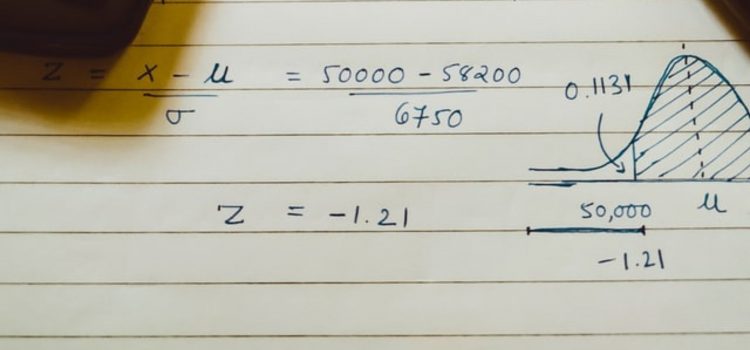 Z = x - μ / σ = 50000 - 58200 / 6750
0.1131
Z = -1.21
50,000 μ
-1.21